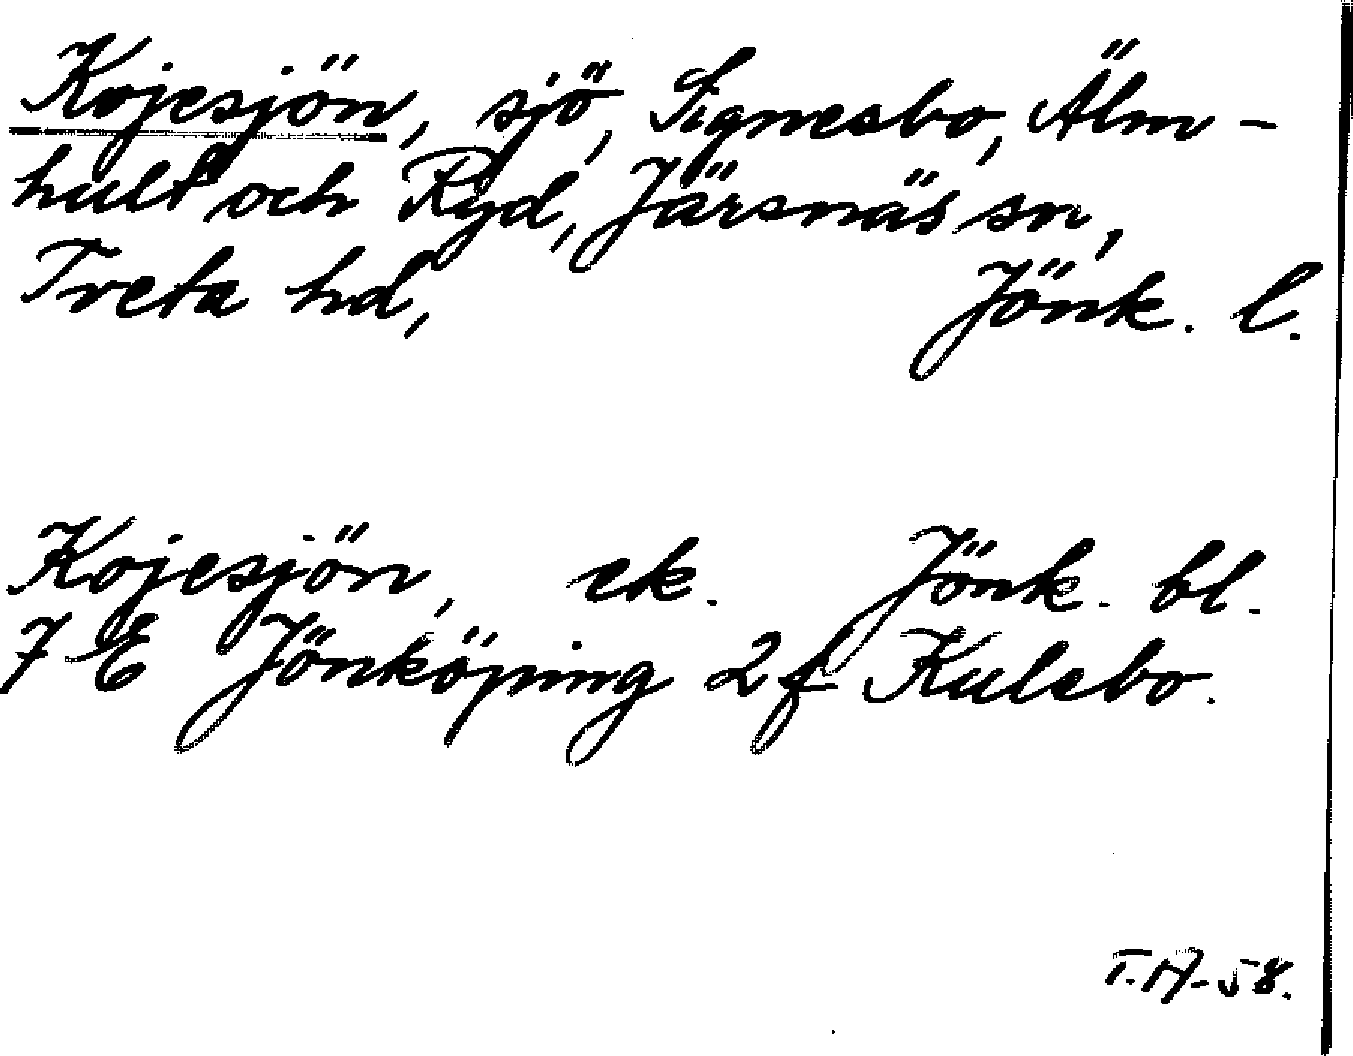 Kojesjön, sjö, Signesbo, Älm-
hult och Ryd, Järsnäs sn,
Tveta hd, Jönk. l.
Kojesjön, ek. Jönk. bl.
7 E Jönköping 2f Kulebo.
T.A-58.